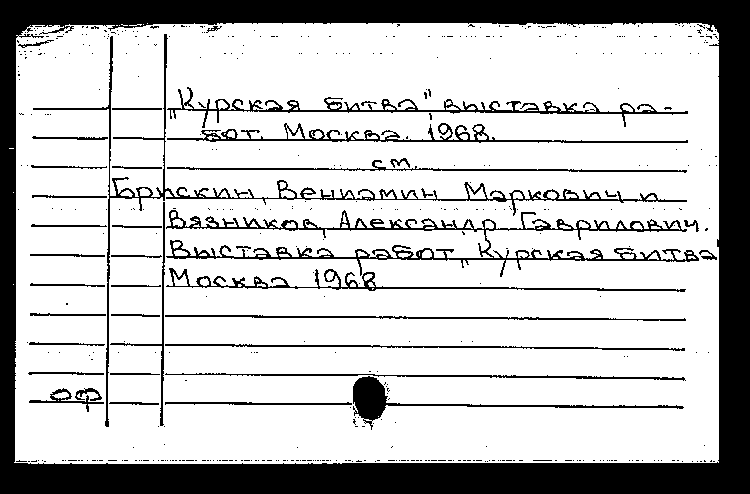 „Курская битва" выставка ра-
бот. Москва. 1968.
см.
Брискин, Вениамин Маркович и
Вязников, Александр Гаврилович.
Выставка работ „Курская битва"
Москва. 1968
оф